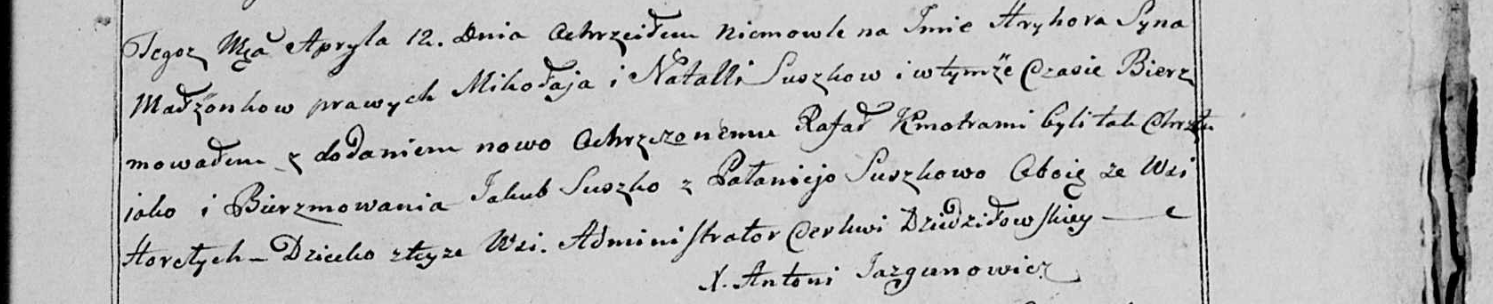 Tegoz Mca Apryla 12. Dnia Ochrzciłem Niemowle na Imie Hryhora Syna
Małżonkow prawych Mikołaja i Natalli Suszkow i w tymże Czasie Bierz
mowałem z dodaniem nowo Ochrzczonemu Rafał Kmotrami byli tak Chrztu
jako i Bierzmowania Jakub Suszko z Pałanieją Suszkowo Oboię ze Wsi
Horełych – Dziecko z teyze Wsi. Administrator Cerkwi Dziedziłowskiey
X. Antoni Jazgunowicz